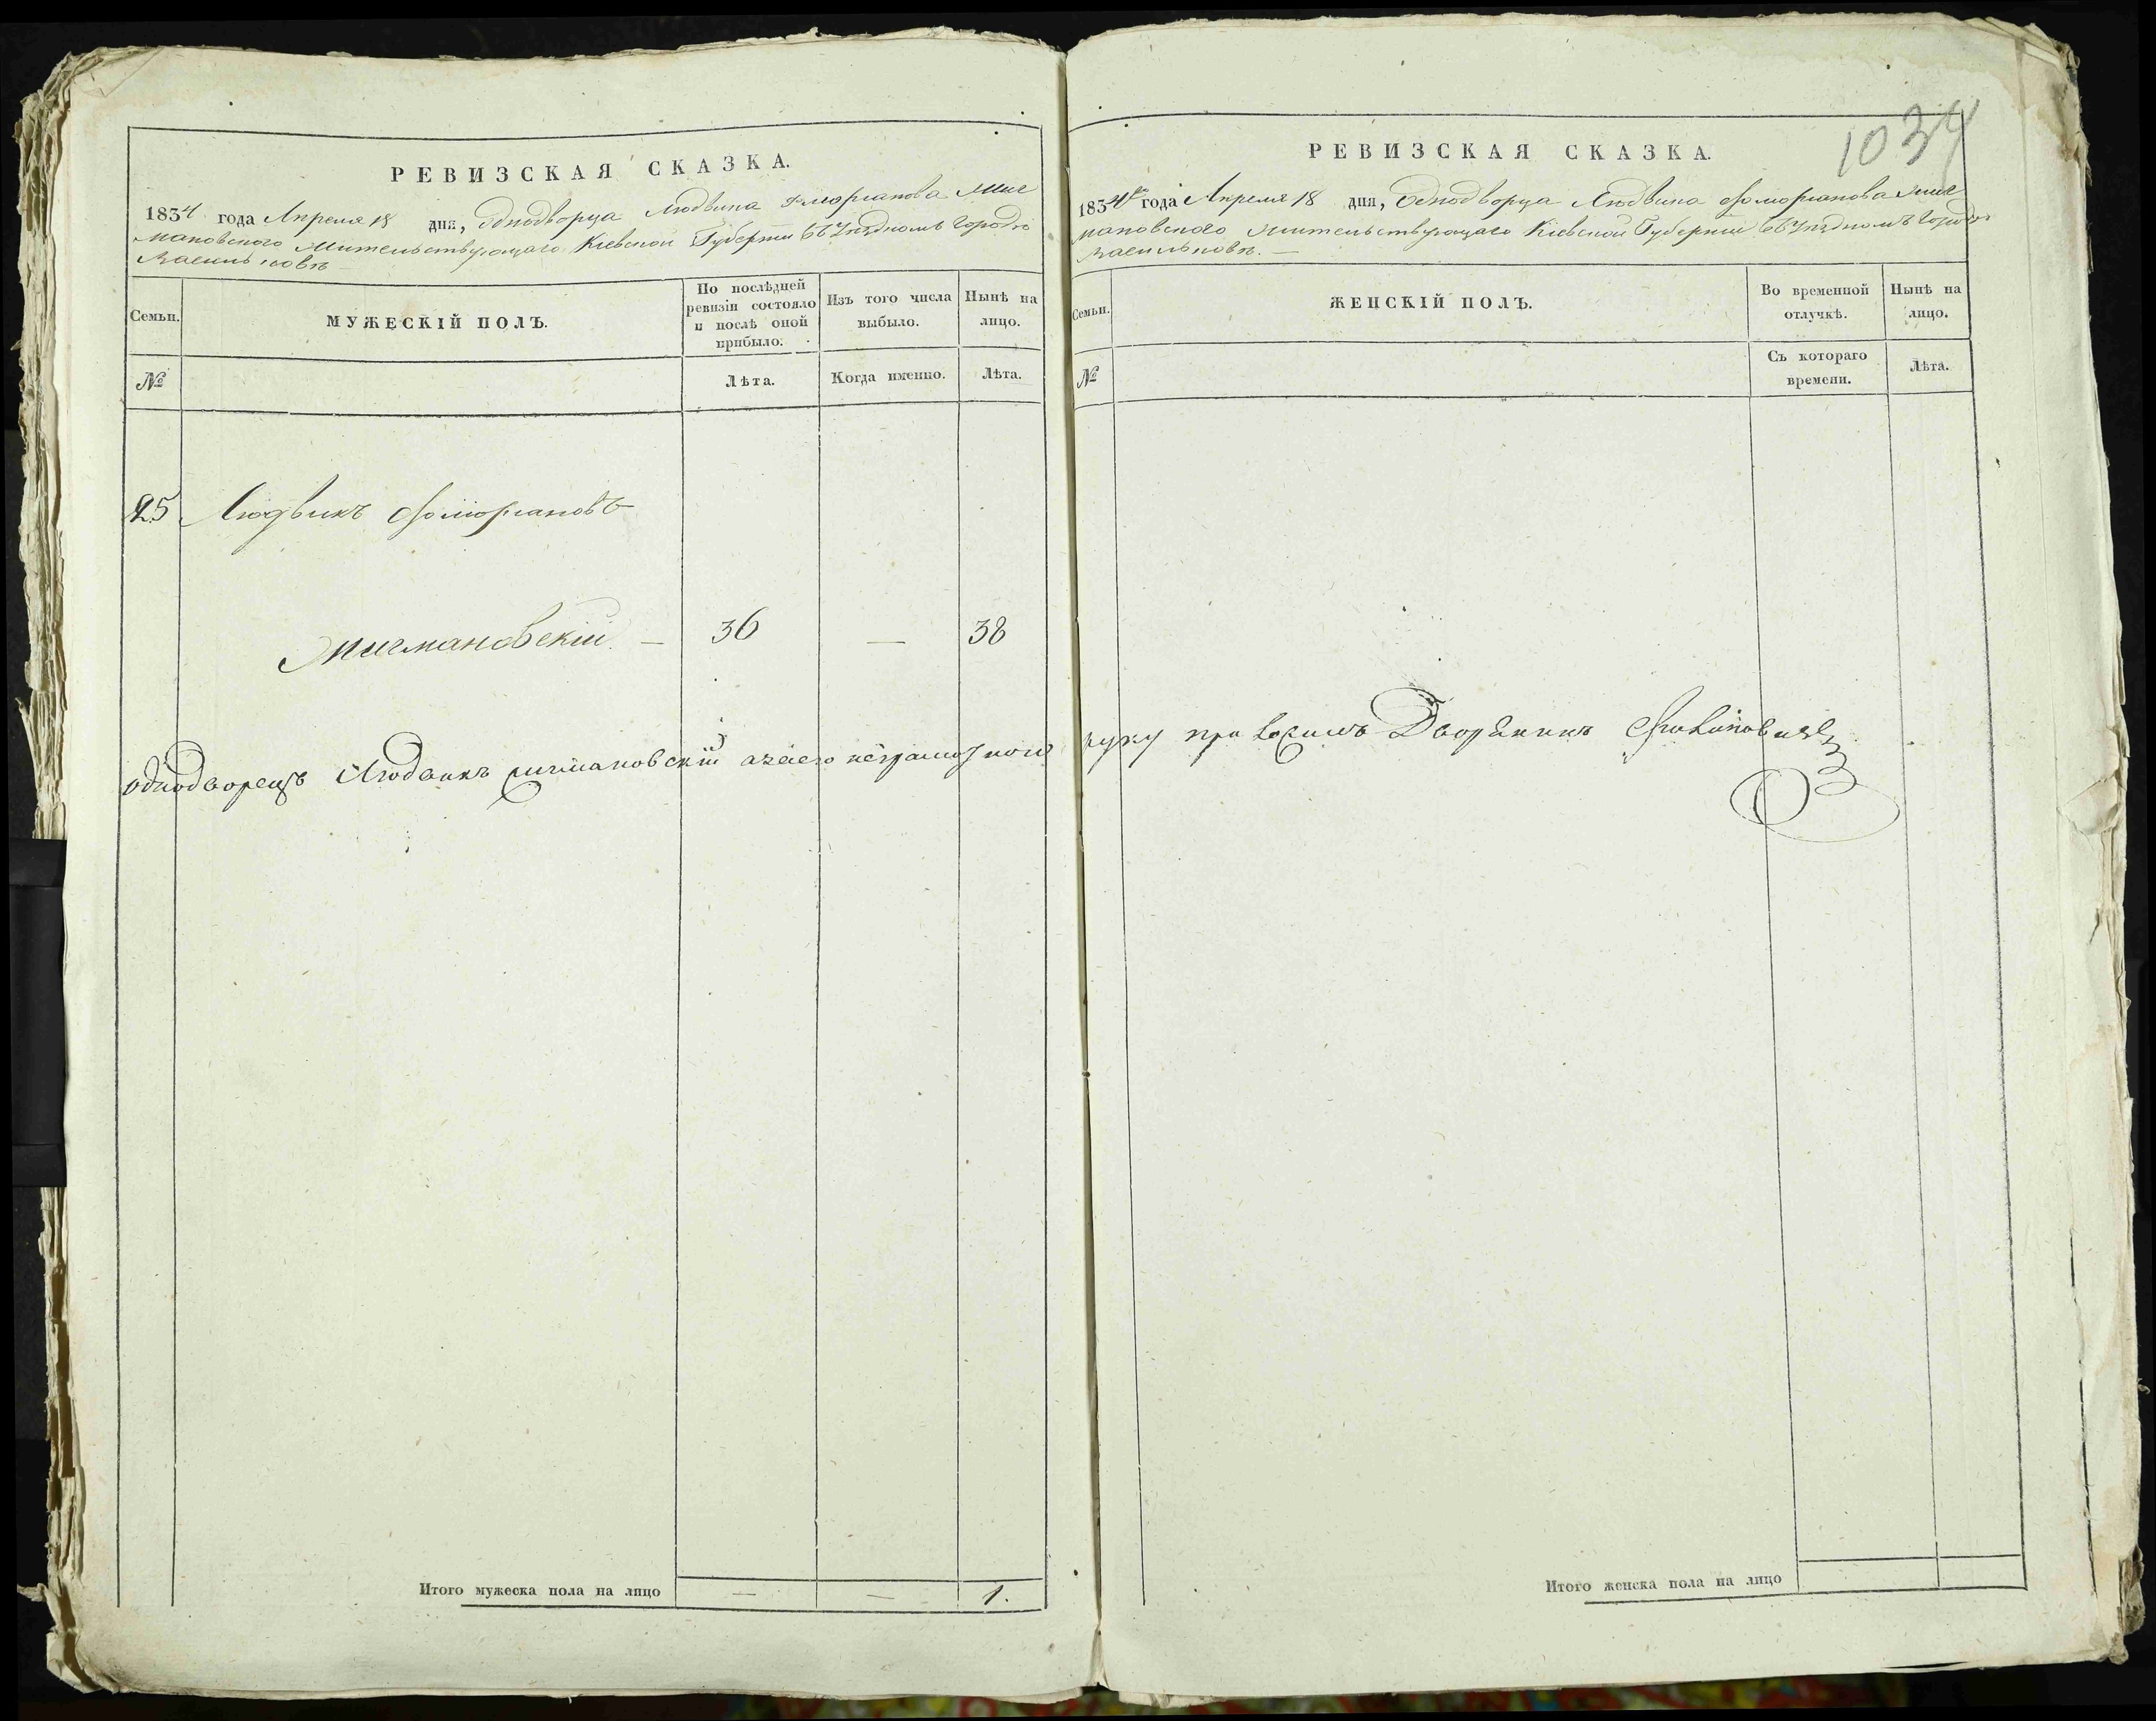 РЕВИЗСКАЯ СКАЗКА.
1834 года Апреля 18 дня, Однодворца Людвика Флоріанова Мич
мановского жительствующаго Кіевской Губерніи въ Уѣздномъ городѣ
Василковѣ
Семьи.
МУЖЕСКІЙ ПОЛЪ.
По послѣдней ревизіи состояло и послѣ оной прибыло.
Изъ того числа выбыло.
Нынѣ на лицо.
№
Лѣта.
Когда именно.
Лѣта.
25 Людвикъ Флоріановъ
Мичмановскій. — 36 — 38
однодворецъ Людвикъ мичмановскій азаего неграмотного
Итого мужеска пола на лицо — — 1.
1034
РЕВИЗСКАЯ СКАЗКА.
1834го года Апреля 18 дня, Однодворца Людвика Флоріанова Мич
мановского жительствующаго Кіевской Губерніи въ Уѣздномъ городѣ
Васильковѣ. —
Семьи.
ЖЕНСКІЙ ПОЛЪ.
Во временной отлучкѣ.
Нынѣ на лицо.
№
Съ котораго времени.
Лѣта.
руку приложилъ Дворянинъ
Итого женска пола на лицо